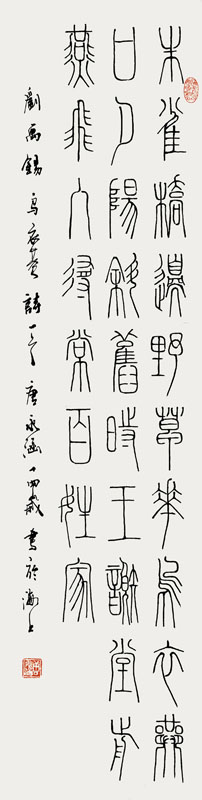 朱雀橋邊野草華烏衣巷
口夕陽斜舊時王謝堂前
燕飛入尋常百姓家
劉禹錫烏衣巷詩一首唐永涵十四歲書於海上